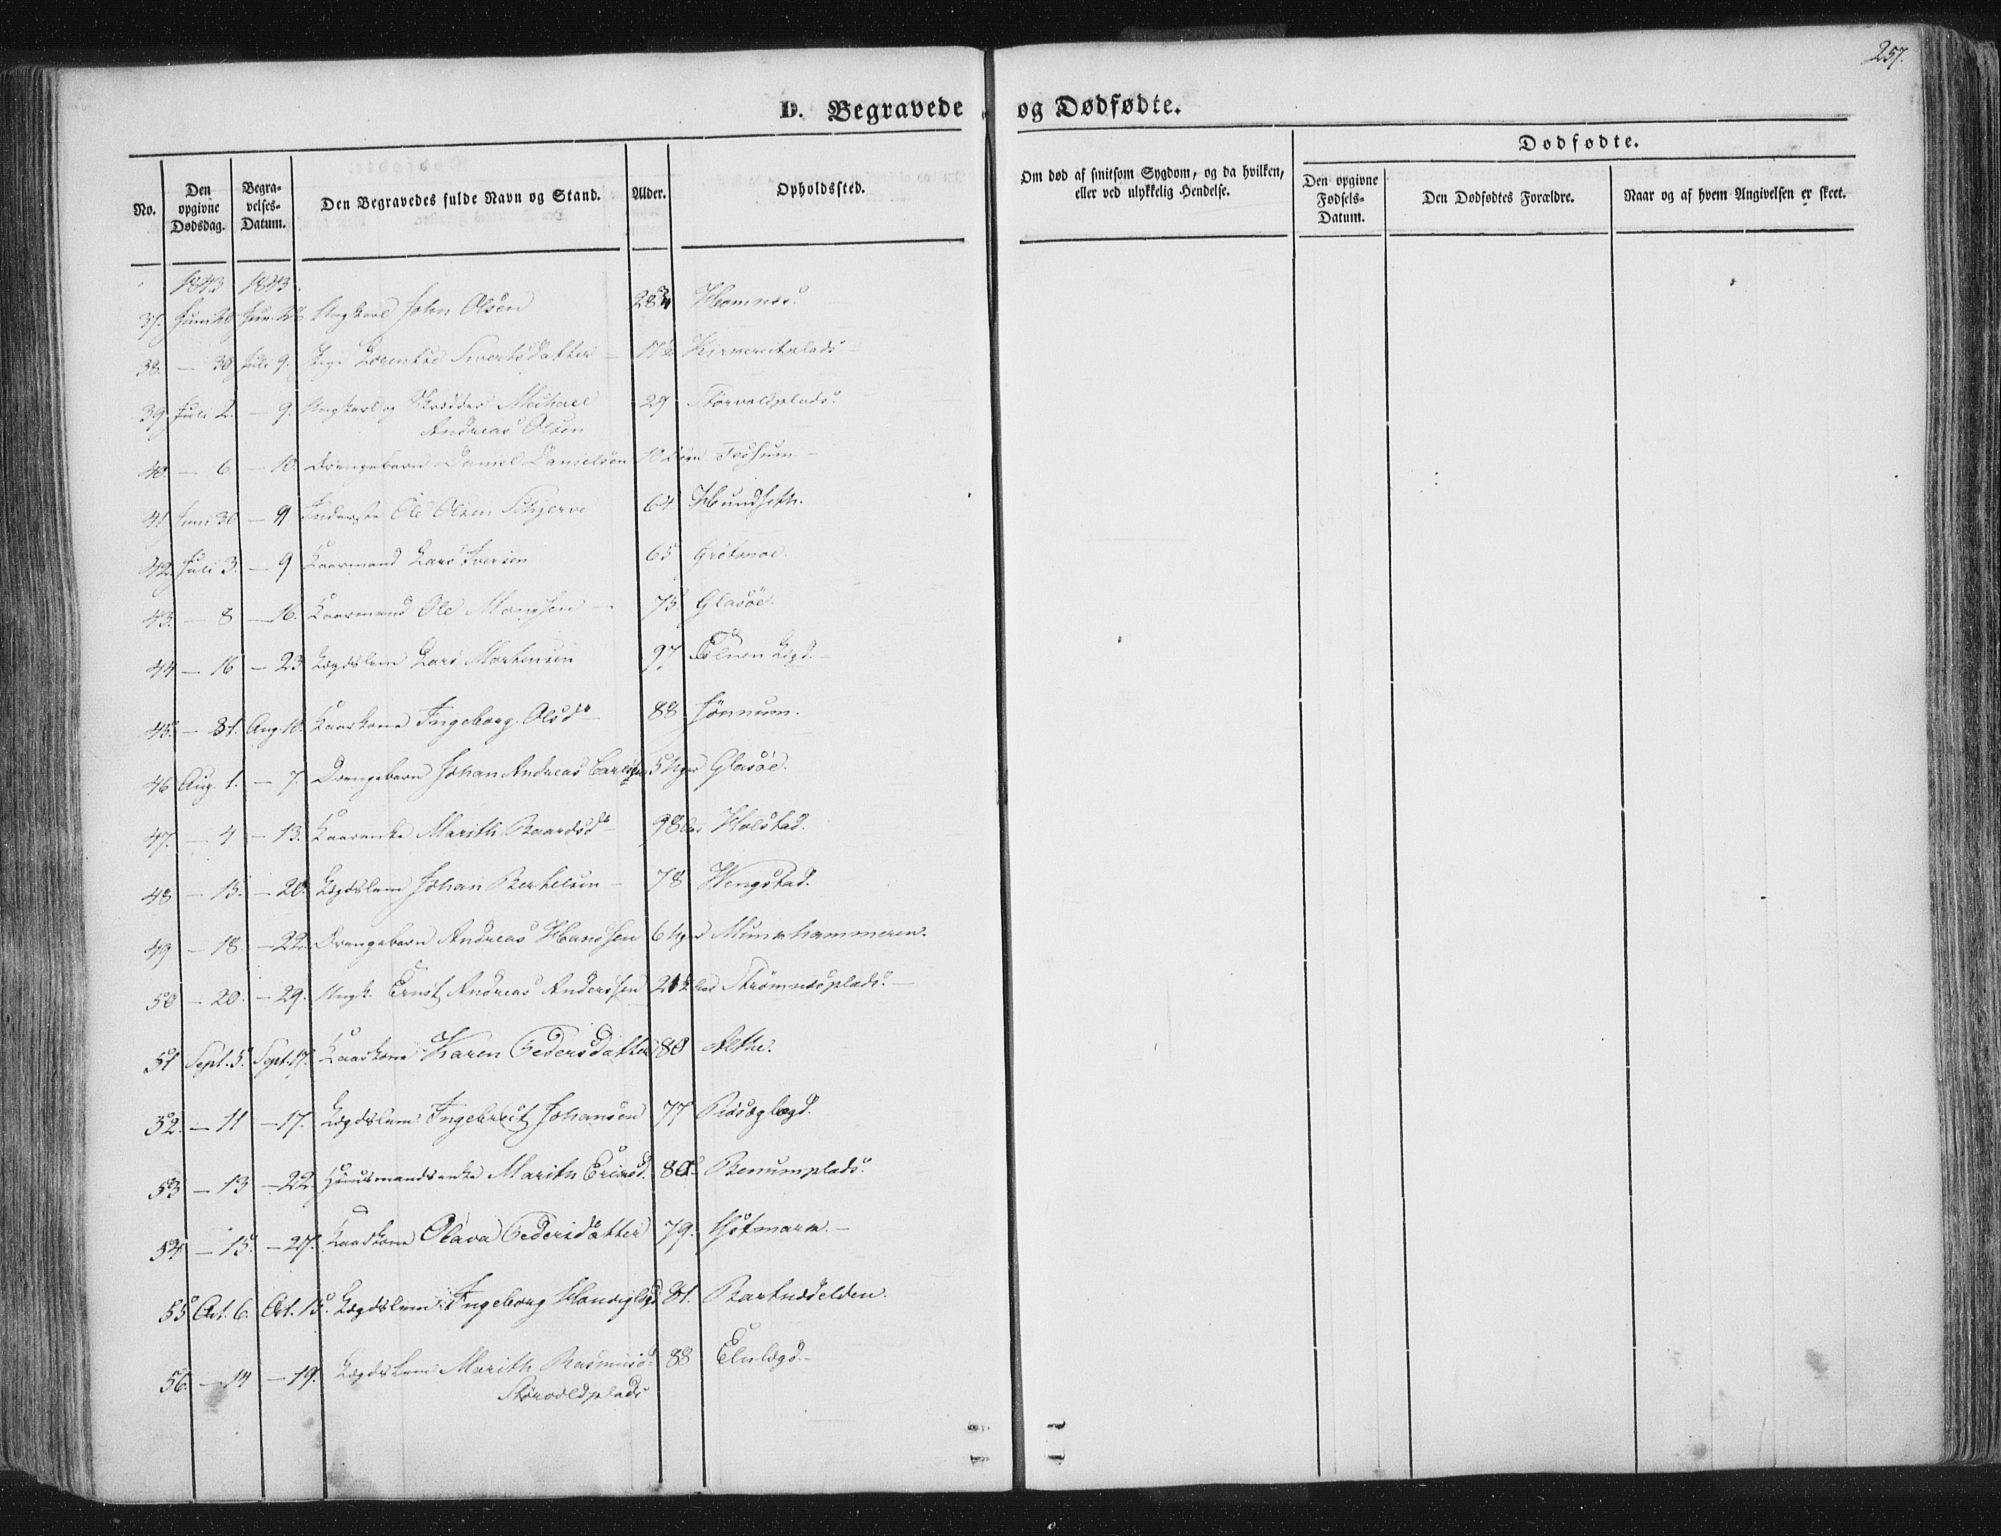 257.
D. Begravede og Dødfødte.
No. Den opgivne Dødsdag. Begravelses-Datum. Den Begravedes fulde Navn og Stand. Alder. Opholdssted. Om død af smitsom Sygdom, og da hvilken, eller ved ulykkelig Hendelse.
Dødfødte.
Den opgivne Fødsels-Datum. Den Dødfødtes Forældre. Naar og af hvem Angivelsen er skeet.
1843 1843.
37. Juni Juni Ungkarl John Olsen 28 Hamnes.
38. — 30 Juli 9. Pige Lorentse Sivertsdatter —
39. Juli 2. — 9. Ungkarl og Skrædder Michael 29 Størvoldplads.
Andreas Olsen
40. — 6 — 10. Drengebarn Daniel Danielsen 10
41 Juni 30 — 9 Inderste Ole Olsen Schjerve 64
42. Juli 3. — 9 Kaarmand Lars Iversen 65 Grötmoe.
43. — 8 — 16. Kaarmand Ole Mongsen — 75 Glasöe.
44 — 16 — 23 Lægdslem Lars Mortensen 97
45. — 31. Aug. 10. Kaarkone Ingeborg Olsdr 88 Sönnum.
46 Aug. 1. — 7. Drengebarn Johan Andreas 5 Uger Glasöe.
47. — 4 — 13. Kaarenke Marith Baardsdr 98 Holstad.
48 — 15. — 20. Lægdslem Johan Bertelsen — 78 Wengstad.
49 — 18. — 22. Drengebarn Andreas Hanssen 6 Uger
50 — 20. — 29. Ungk. Ernst Andreas Anderssen Strömnesplads. —
51 Sept. 5. Sept. 17. Kaarkone Karen Pedersdatter 80
52. — 11 — 17. Lægdslem Ingebrigt Johansen 77
53 — 13 — 22. Huusmandsenke Marith Ericsd. 80 Benumplads.
54 — 15. — 27. Kaarkone Olava Pedersdatter 79.
55 Oct. 6. Oct. 15. Lægdslem Ingeborg 81. Bartnesdelden.
56. — 14 — 19. Lægdslem Marith Rasmusd. 88 Elvlægd. —
Størvoldplads